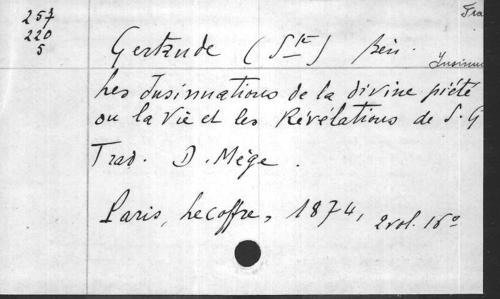 257
220
5
Fra
Gertrude (Ste) Bén.
Insinua
Les Insinuations de la divine piété
ou la Vie et les Révélations de S. G
Trad. D. Mège.
Paris, Lecoffre, 1874, 2 vol. 16°